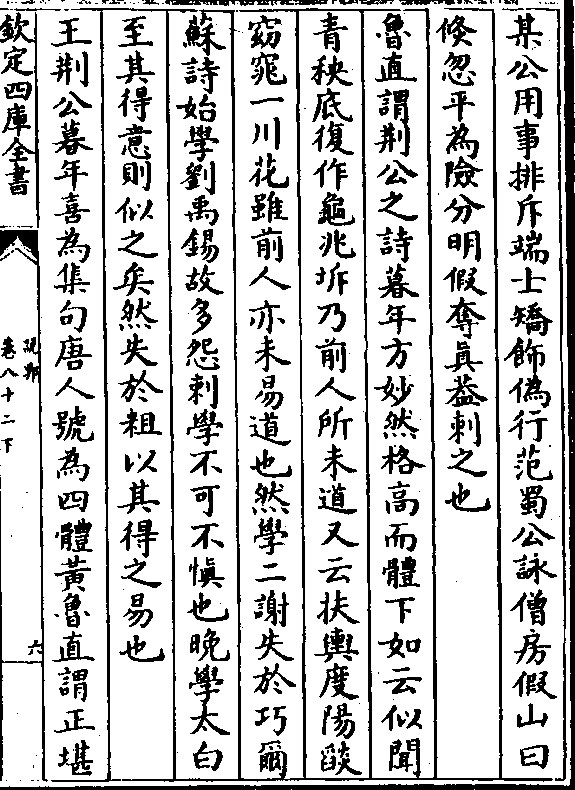 某公用事排斥端士矯飾偽行范蜀公詠僧房假山曰
倐忽平為險分明假奪真葢刺之也
魯直謂荆公之詩暮年方妙然格高而體下如云似聞
青秧底復作龜兆坼乃前人所未道又云扶輿度陽燄
窈窕一川花雖前人亦未易道也然學二謝失於巧爾
蘇詩始學劉禹錫故多怨刺學不可不慎也晚學太白
至其得意則似之矣然失於粗以其得之易也
王荆公暮年喜為集句唐人號為四體黃魯直謂正堪
欽定四庫全書
說郛
卷八十二下
六